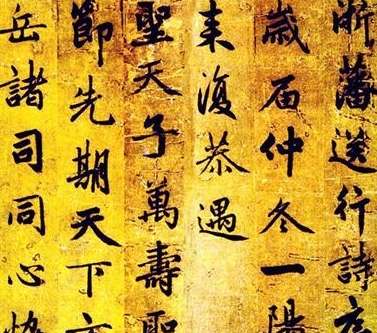 浙藩送行詩序
歲届仲冬一陽
来復恭遇
聖天子萬壽聖
節先期天下方
岳諸司同心